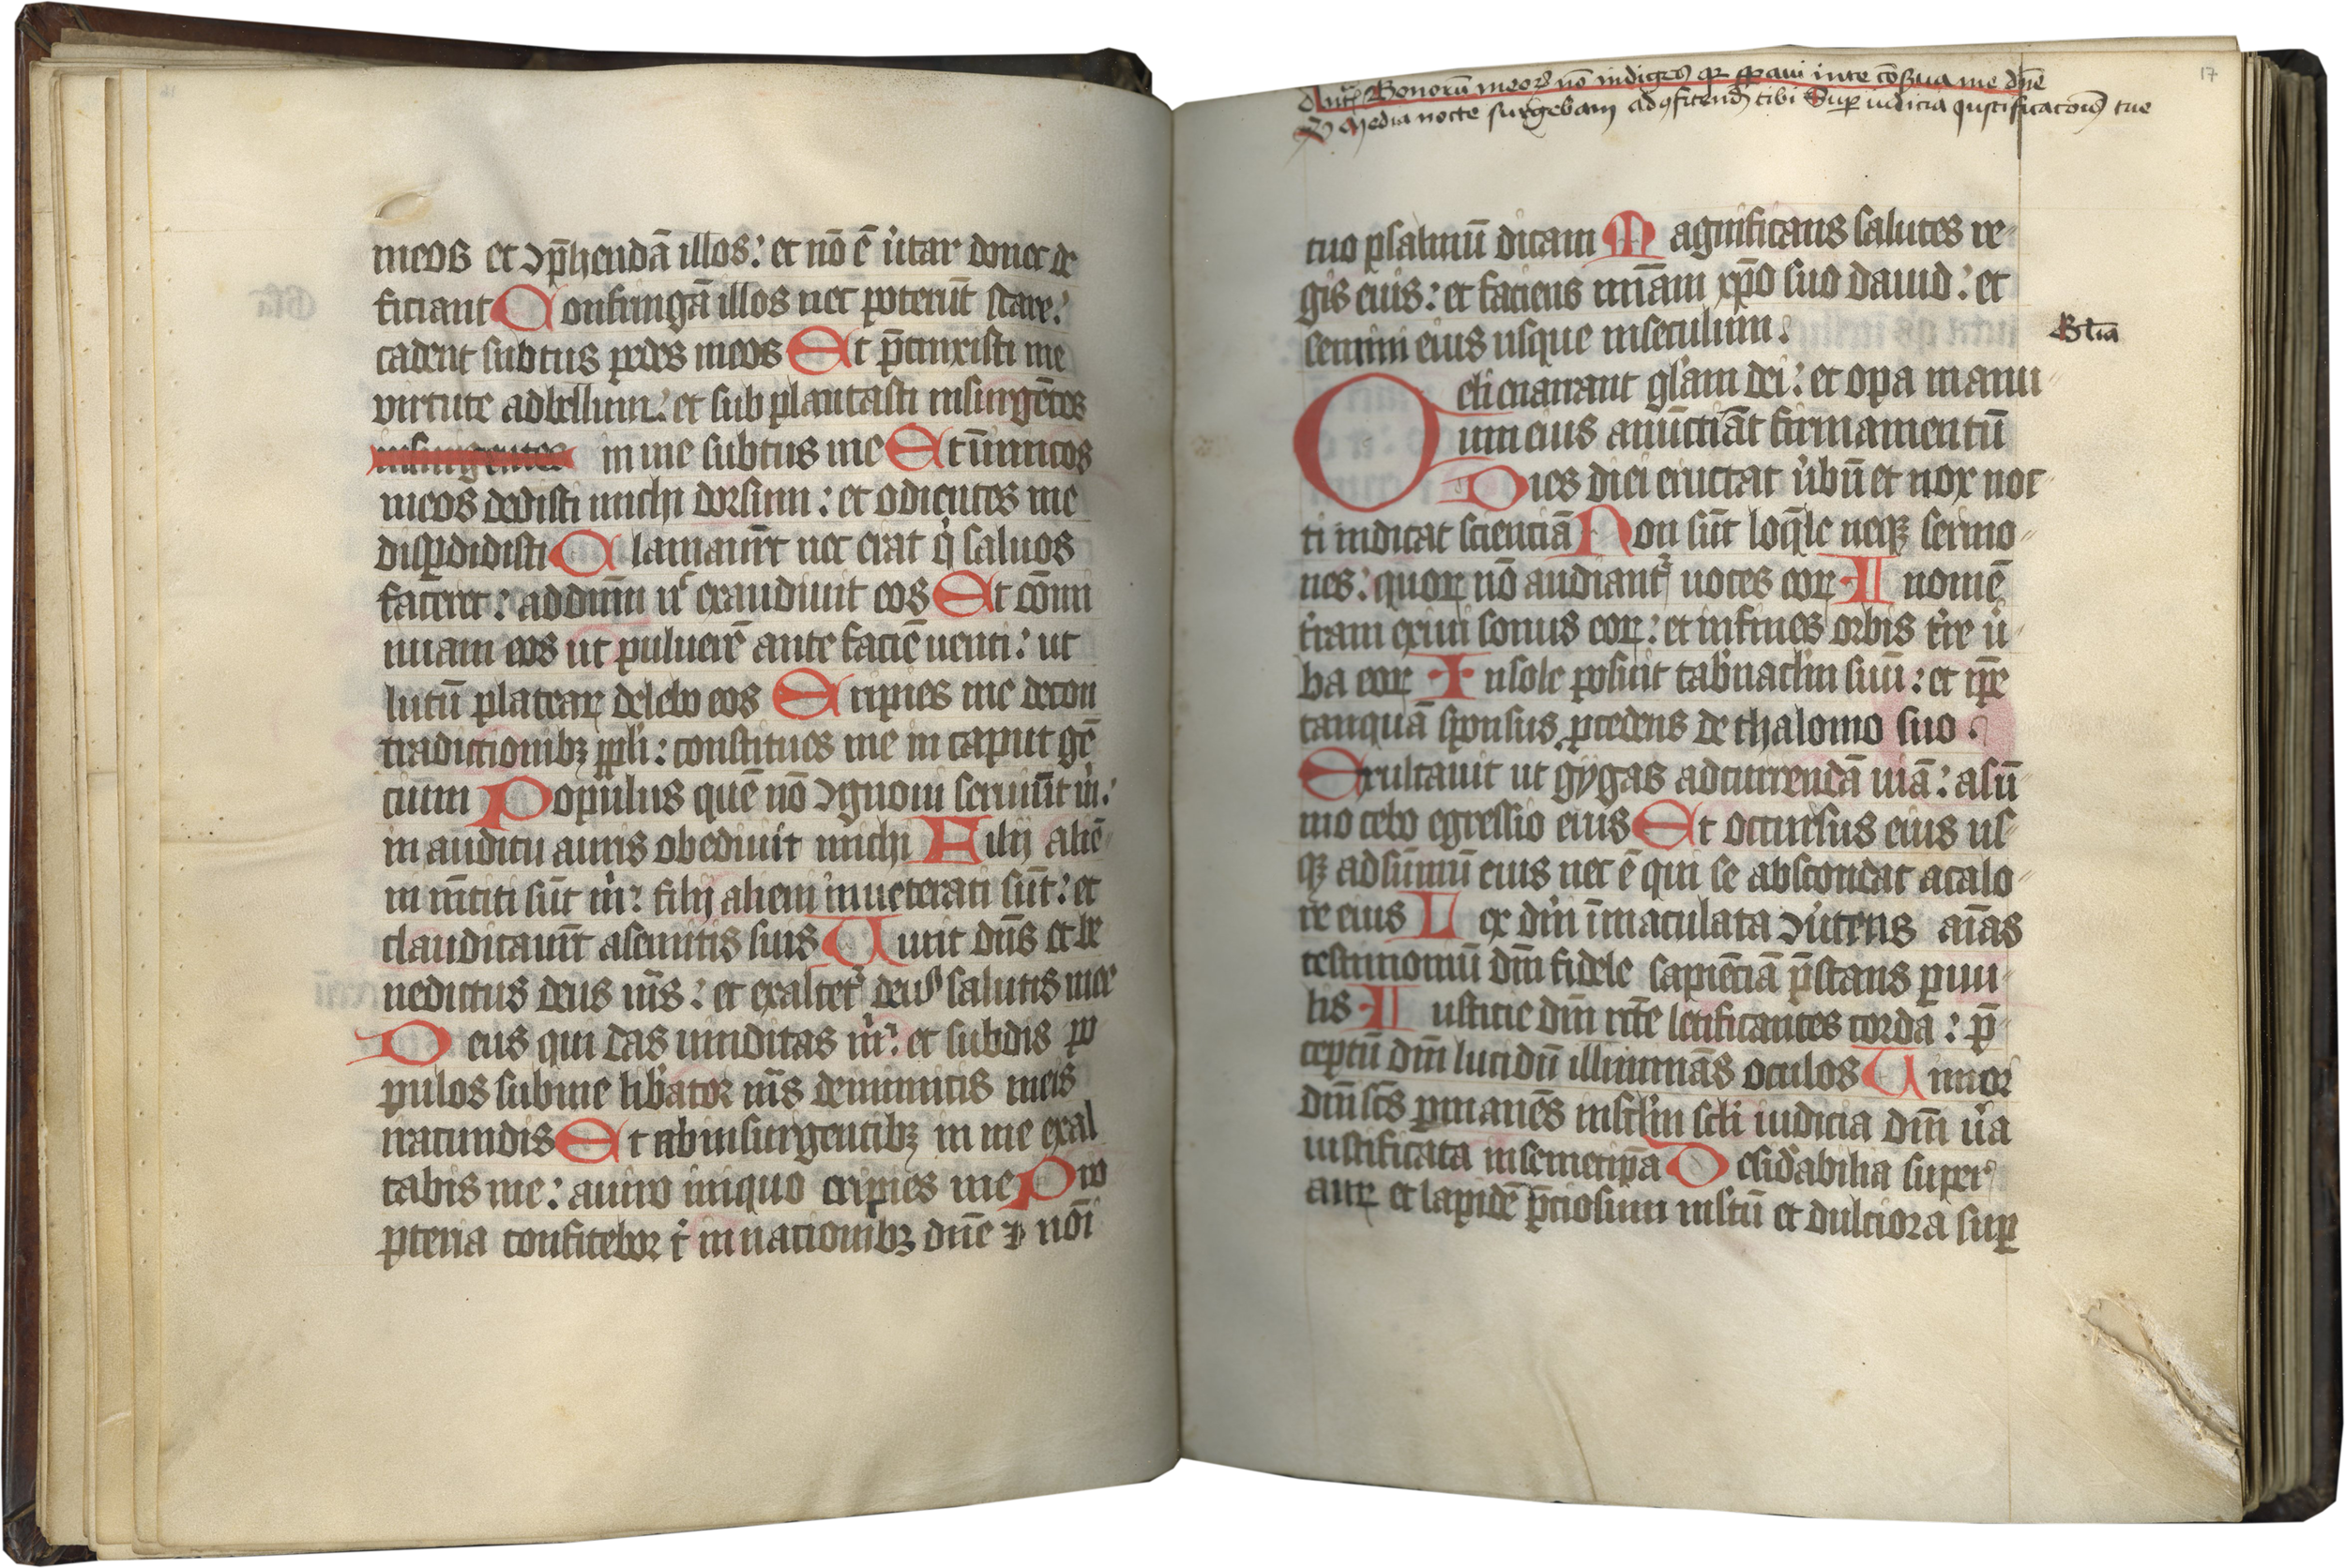 meos et ↄp̄hendā illos: et nō ē ůtar donec de
ficiant Confringā illos nec poterūt stare:
cadent subtus pedes meos Et p̄cinxisti me
virtute adbellum: et sub plantasti insurgētes
insurgentes in me subtus me Et inimicos
meos dedisti michi dorsum: et odientes me
disꝑdidisti Clamauer̄t nec erat q̇ saluos
faceret: ad dn̄m nͨ exaudiuit eos Et cōmi
nuam eos ut puluerē ante faciē uenti: ut
lutū plateaꝝ delebo eos Eripies me decon
tradictionibꝫ ppl̓i: constitues me in caput gē
cium Populus quē nō ↄgnoui seruiuīt m̓:
in auditu auris obediuit michi Filij aliē
in mētiti sūt m̓: filij alieni inueterati sūt: et
claudicauer̄t asemitis suis Uiuit dn̄s et be
nedictus deus m̄s: et exaltet᷑ deus salutis mee
Deus qui das uindictas m̓: et subdis po
pulos subme lib̓ator m̄s deinimicis meis
iracundis Et ab insurgentibꝫ in me exal
tabis me: auiro iniquo eripies me Pro
pterea confitebor t̓ in nationibꝫ dn̄e ⁊ nōi
17
Ant̄ Bonoꝝ meoꝝ nō indiges qꝛ sperauī inte cōserua me dn̄e
V Media nocte surgebam adꝯfitendū tibi Suꝑ iudicia iustificatōis tue
tuo psalmū dicam Magnificans salutes re
gis eius: et faciens mīam xp̄o suo dauid: et
semini eius usque inseculum.
Gl̓ia
Celi enarrant gl̓am dei: et opa manu
um eius anūctiāt firmamentū
Dies diei eructat ůbū et nox noc
ti indicat scienciā Non sūt loq̄le neqꝫ sermo
nes: quoꝝ nō audiant᷑ uoces eoꝝ In omnē
t̓ram exiui sonus eoꝝ: et infines orbis t̓re ů
ba eoꝝ In sole posuit tab̓nacl̓m suū: et ip̄e
tanquā sponsus ꝓcedens de thalomo suo
Exultauit ut gygas adcurrendā uiā: asū
mo celo egressio eius Et occursus eius us
qꝫ adsūmū eius nec ē qui se abscondat acalo
re eius Lex dn̄i īmaculata ↄůtens aīas
testimoniū dn̄i fidele sapiēciā p̄stans ꝑuu
lis Iusticie dn̄i rc̄te letificantes corda: p̄
ceptū dn̄i lucidū illuminās oculos Timor
dn̄i sc̄s ꝑmanēs insc̄l̓m sc̄l̓i iudicia dn̄i ůa
iustificata insemetip̄a Desid̓abilia super
auꝝ et lapidē p̄ciosum ml̓tū et dulciora suꝑ